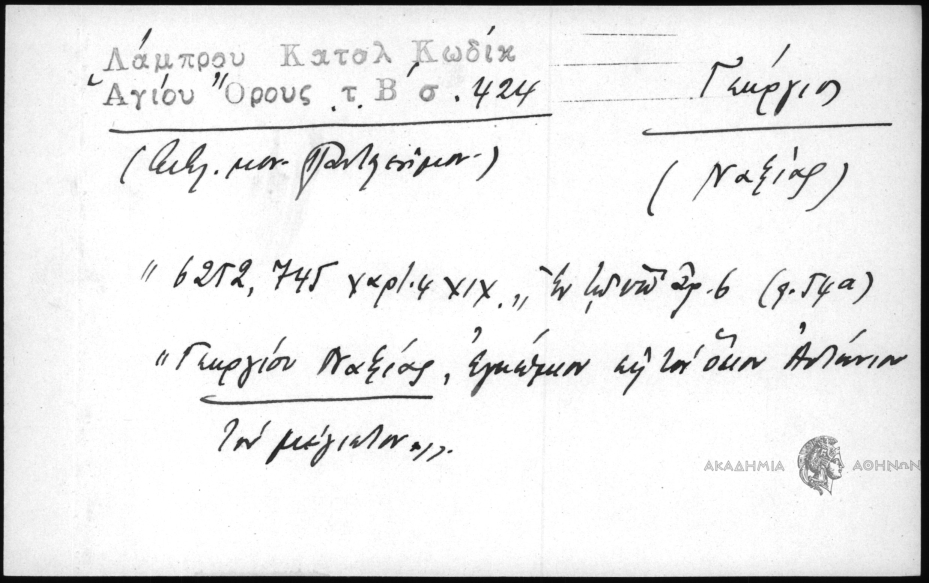 Λάμπρου Κατολ Κωδίκ
Ἁγίου Ὄρους τ. Β σ. 424
Γεώργιος
(Βιβλ. μον. Παντελεήμον.)
(Ναξίας)
" 6252, 745 χαρτ. 4 XIX. " Ἐν ἀρ. 6 (φ. 54α)
"Γεωργίου Ναξίας, Ἐγκώμιον εἰς τὸν ὅσιον Ἀντώνιον
τὸν μέγιστον κλπ.
ΑΚΑΔΗΜΙΑ ΑΘΗΝΩΝ